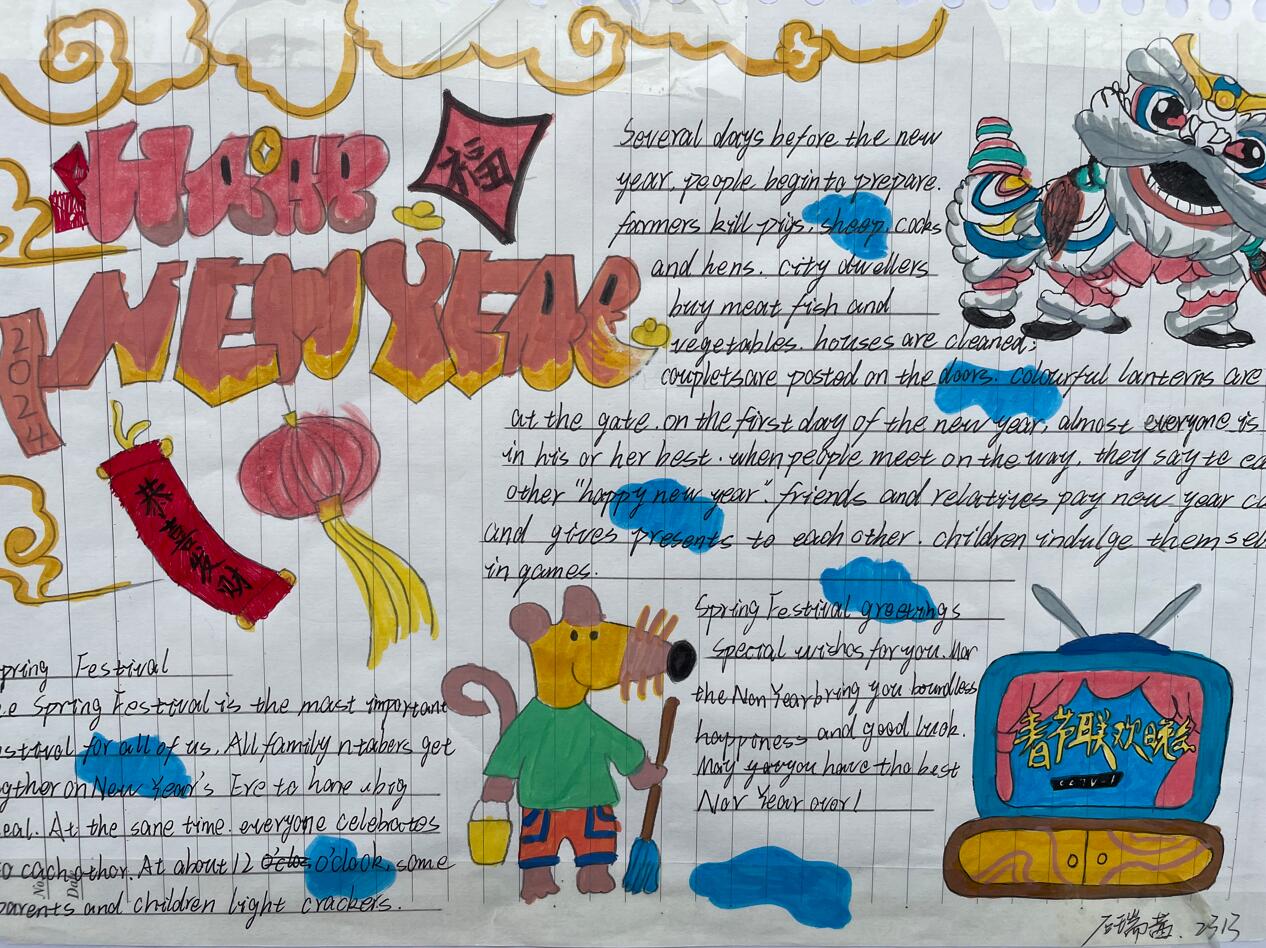 HAPP
福
NEW YEAR
2024
恭喜发财
Several days before the new
year, people begin to prepare.
farmers kill pigs, sheep, cocks
and hens. city dwellers
buy meat fish and
vegetables. houses are cleaned;
couplets are posted on the doors. colourful lanterns are
at the gate. on the first day of the new year, almost everyone is
in his or her best. when people meet on the way, they say to ea
other "happy new year". friends and relatives pay new year c
and gives presents to each other. children indulge themsel
in games.
pring Festival
e Spring Festival is the most important
stival for all of us. All family ntabers get
gther on New Year's Eve to have a big
eal. At the sane time. everyone celebrates
o each other. At about 12 o'clock, some
parents and children light crackers.
Spring Festival greetings
Special wishes for you. Mar
the Nen Year bring you boundless
happness and good luck.
May you have the best
Nor Year over!
春节联欢晚会
cctv1
No.
Date
2313